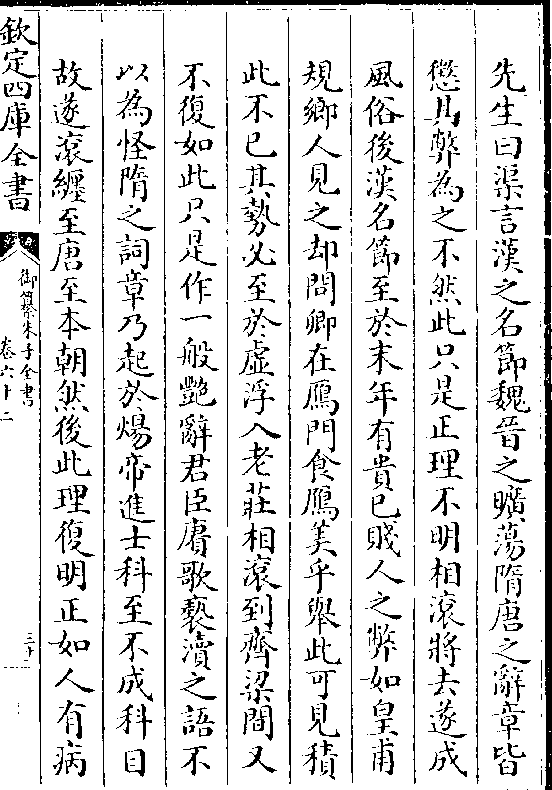 先生曰渠言漢之名節魏晉之曠蕩隋唐之辭章皆
懲其弊為之不然此只是正理不明相滾將去遂成
風俗後漢名節至於末年有貴已賤人之弊如皇甫
規鄉人見之却問卿在鴈門食鴈美乎舉此可見積
此不已其勢必至於虚浮入老莊相滾到齊梁間又
不復如此只是作一般艶辭君臣賡歌褻瀆之語不
以為怪隋之詞章乃起於煬帝進士科至不成科目
故遂滾纏至唐至本朝然後此理復明正如人有病
欽定四庫全書
御纂朱子全書
卷六十二
三十